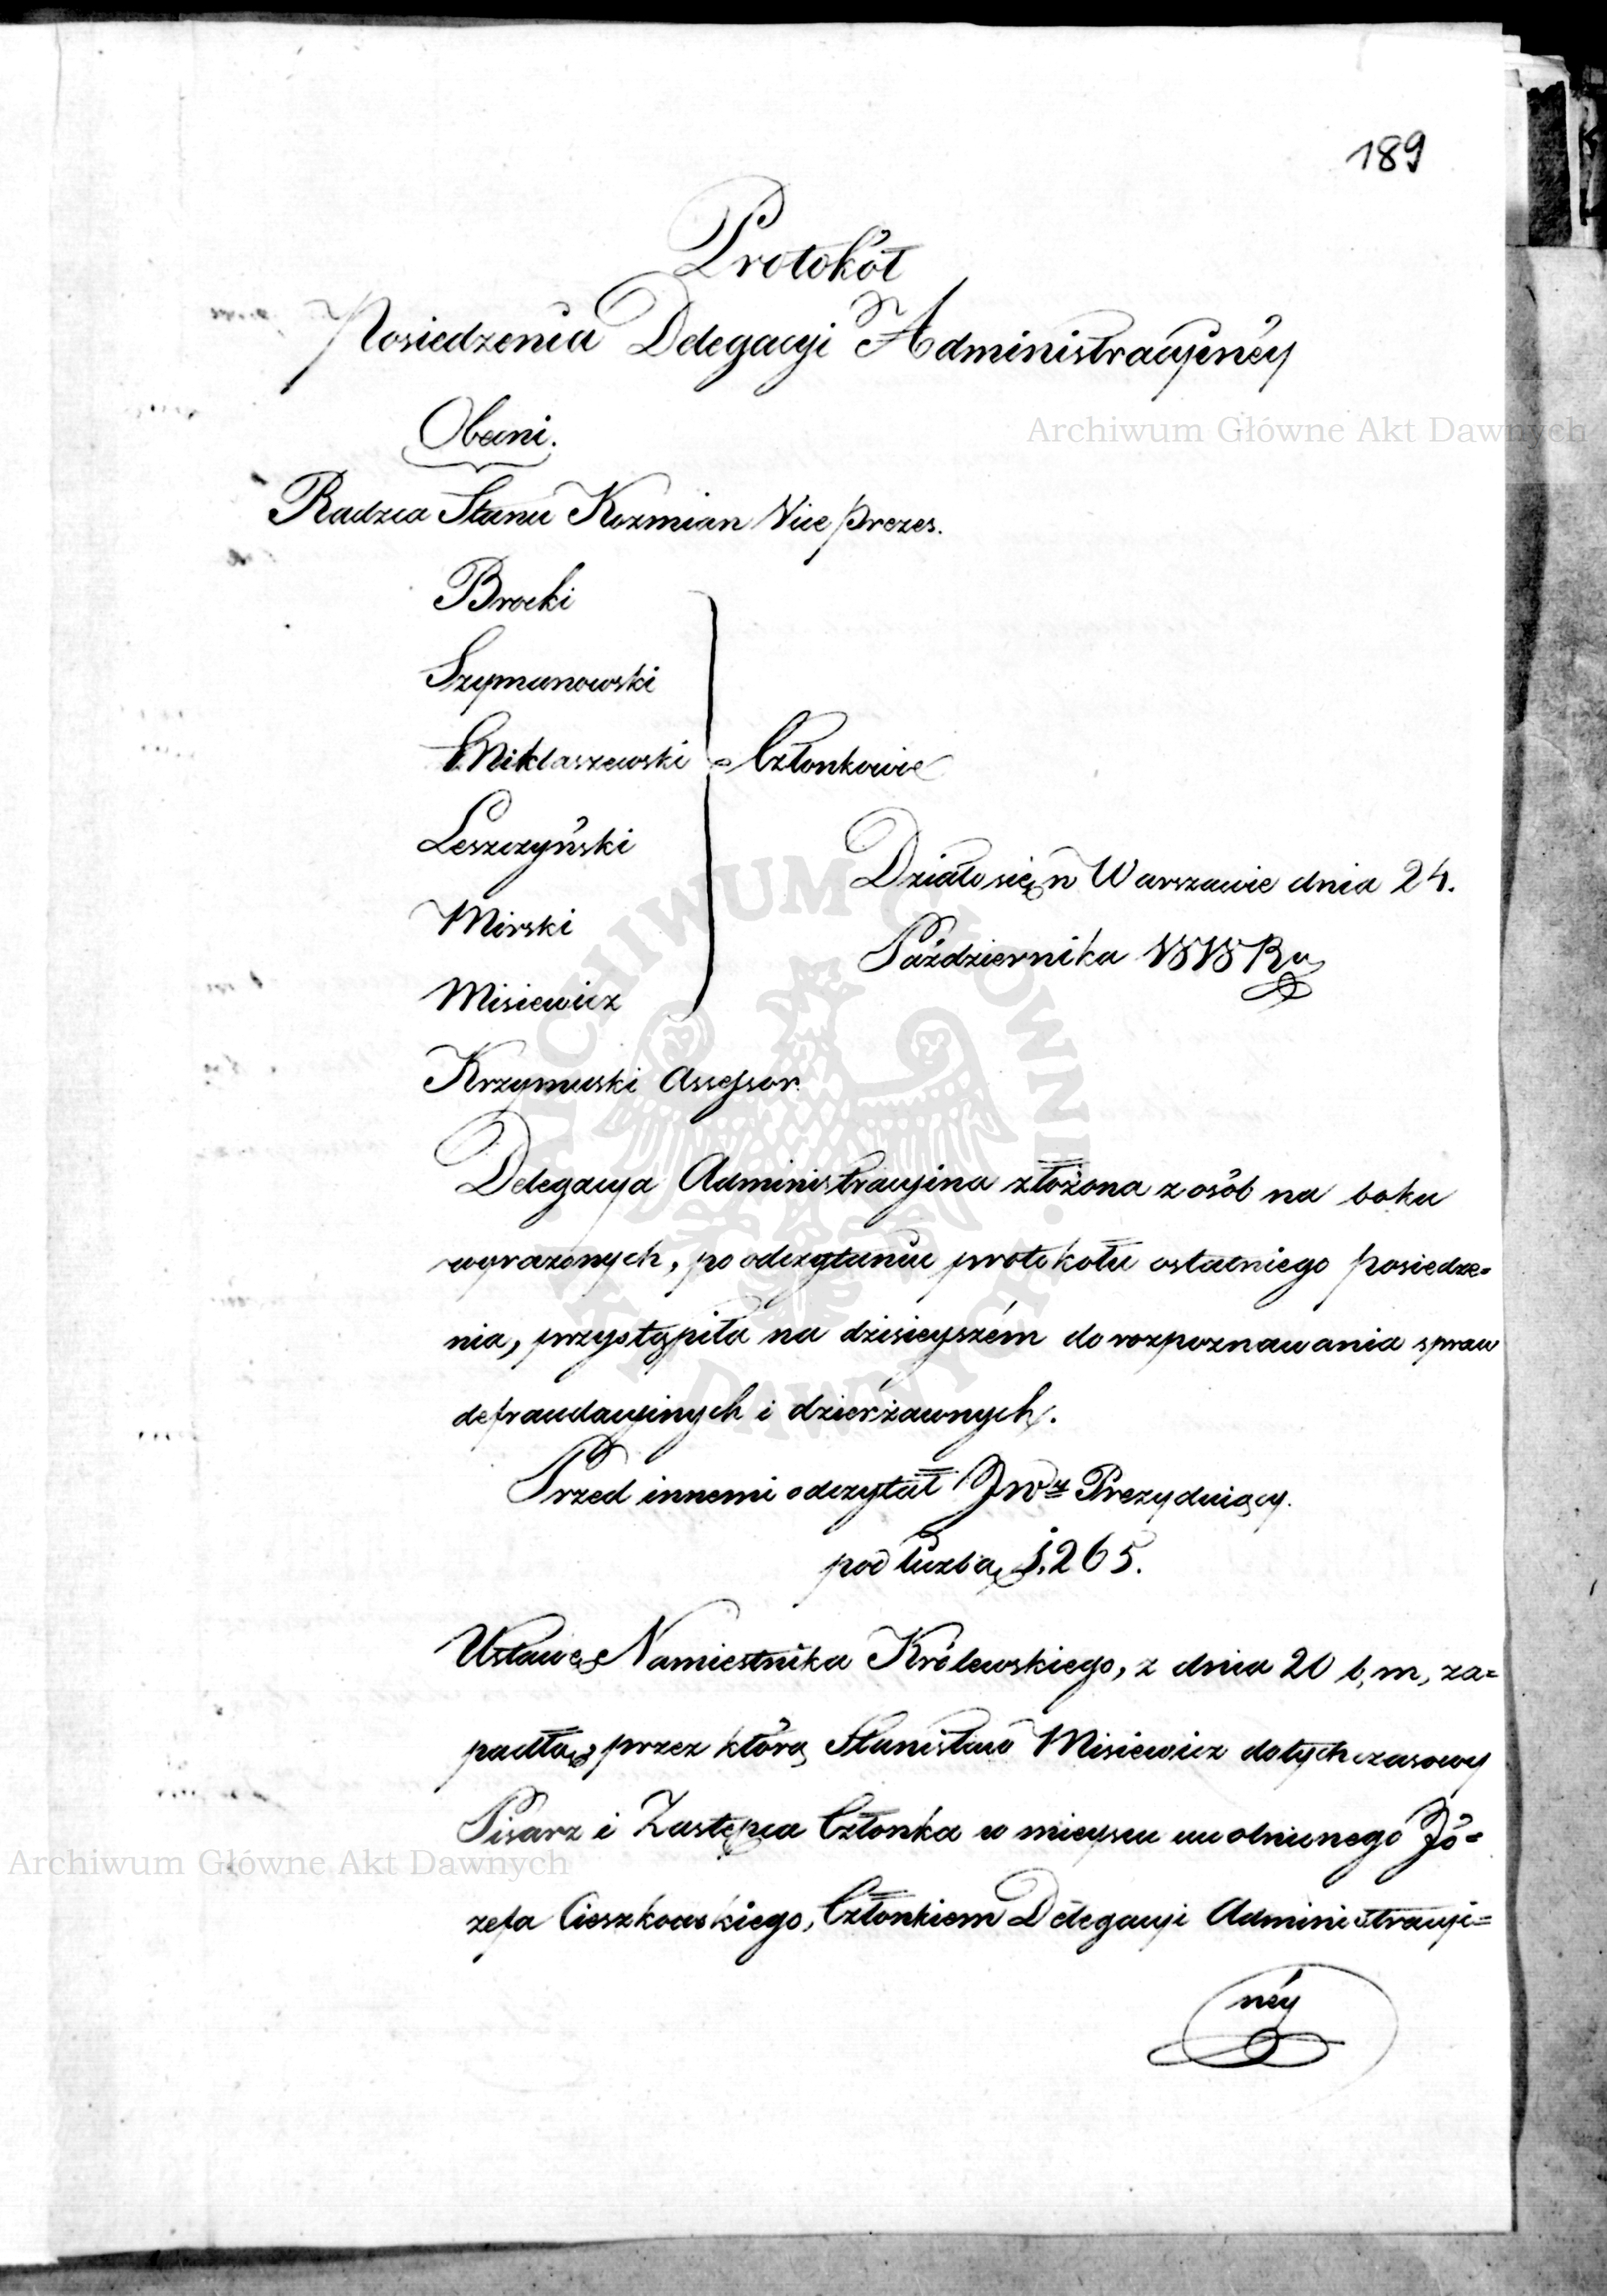 189
Protokół
Posiedzenia Delegacyi Administracyiney
Obecni.
Radzca Stanu Kozmian Vice Prezes.
Brocki
Szymanowski
Miklaszewski
Członkowie
Leszczyński
Mirski
Misiewicz
Działo się w Warszawie dnia 24.
Października 1818 Ru
Krzymuski Assessor.
Delegacya Administracyina złożona z osób na boku
wyrażonych, po odczytaniu protokołu ostatniego posiedze=
nia, przystąpiła na dzisieyszém do rozpoznawania spraw
defraudacyinych i dzierżawnych.
Przed innemi odczytał JWy Prezyduiący.
pod liczbą 1.265.
Ustawę Namiestnika Królewskiego, z dnia 20 b, m, za=
padłą, przez którą Stanisław Misiewicz dotychczasowy
Pisarz i Zastępca Członka w mieyscu uwolnionego Jó=
zefa Cieszkowskiego, Członkiem Delegacyi Administracyi=
néy
Archiwum Główne Akt Dawnych
ARCHIWUM GŁÓWNE AKT DAWNYCH
Archiwum Główne Akt Dawnych